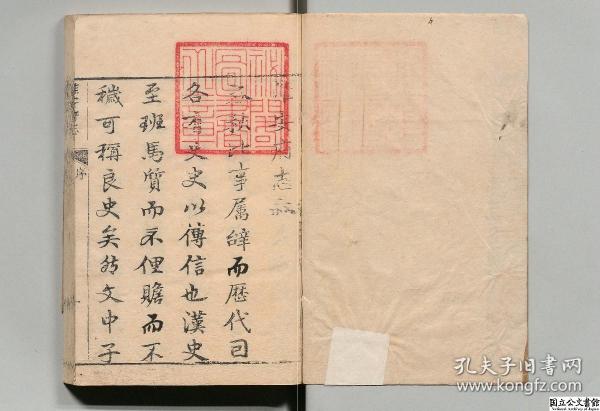 安府志
秋比事屬辭而歷代
各有史史以傳信也漢史
至班馬質而不俚贍而不
穢可稱良史矣然文中子
序
孔夫子旧书网
www.kongfz.com
国立公文書館
National Archives of Japan